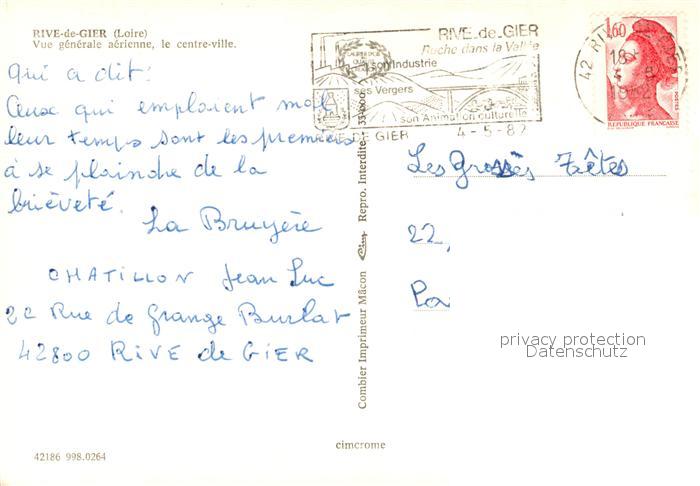 RIVE-de-GIER (Loire)
Vue générale aérienne, le centre-ville.
Qui a dit:
Ceux qui emploient mal
leur temps sont les premiers
à se plaindre de la
brièveté.
La Bruyère
CHATILLON Jean Luc
22 Rue de Grange Burlat
42800 RIVE de GIER
42186 998.0264
Combier Imprimeur Mâcon Cim Repro. Interdite
cimcrome
RIVE-de-GIER
Ruche dans la Vallée
son Industrie
ses Vergers
son Animation culturelle
DE GIER 4-5-82
42 RIVE
18
4 5
1982
1,60
POSTES
REPUBLIQUE FRANÇAISE
Les Grosses Têtes
22,
privacy protection
Datenschutz